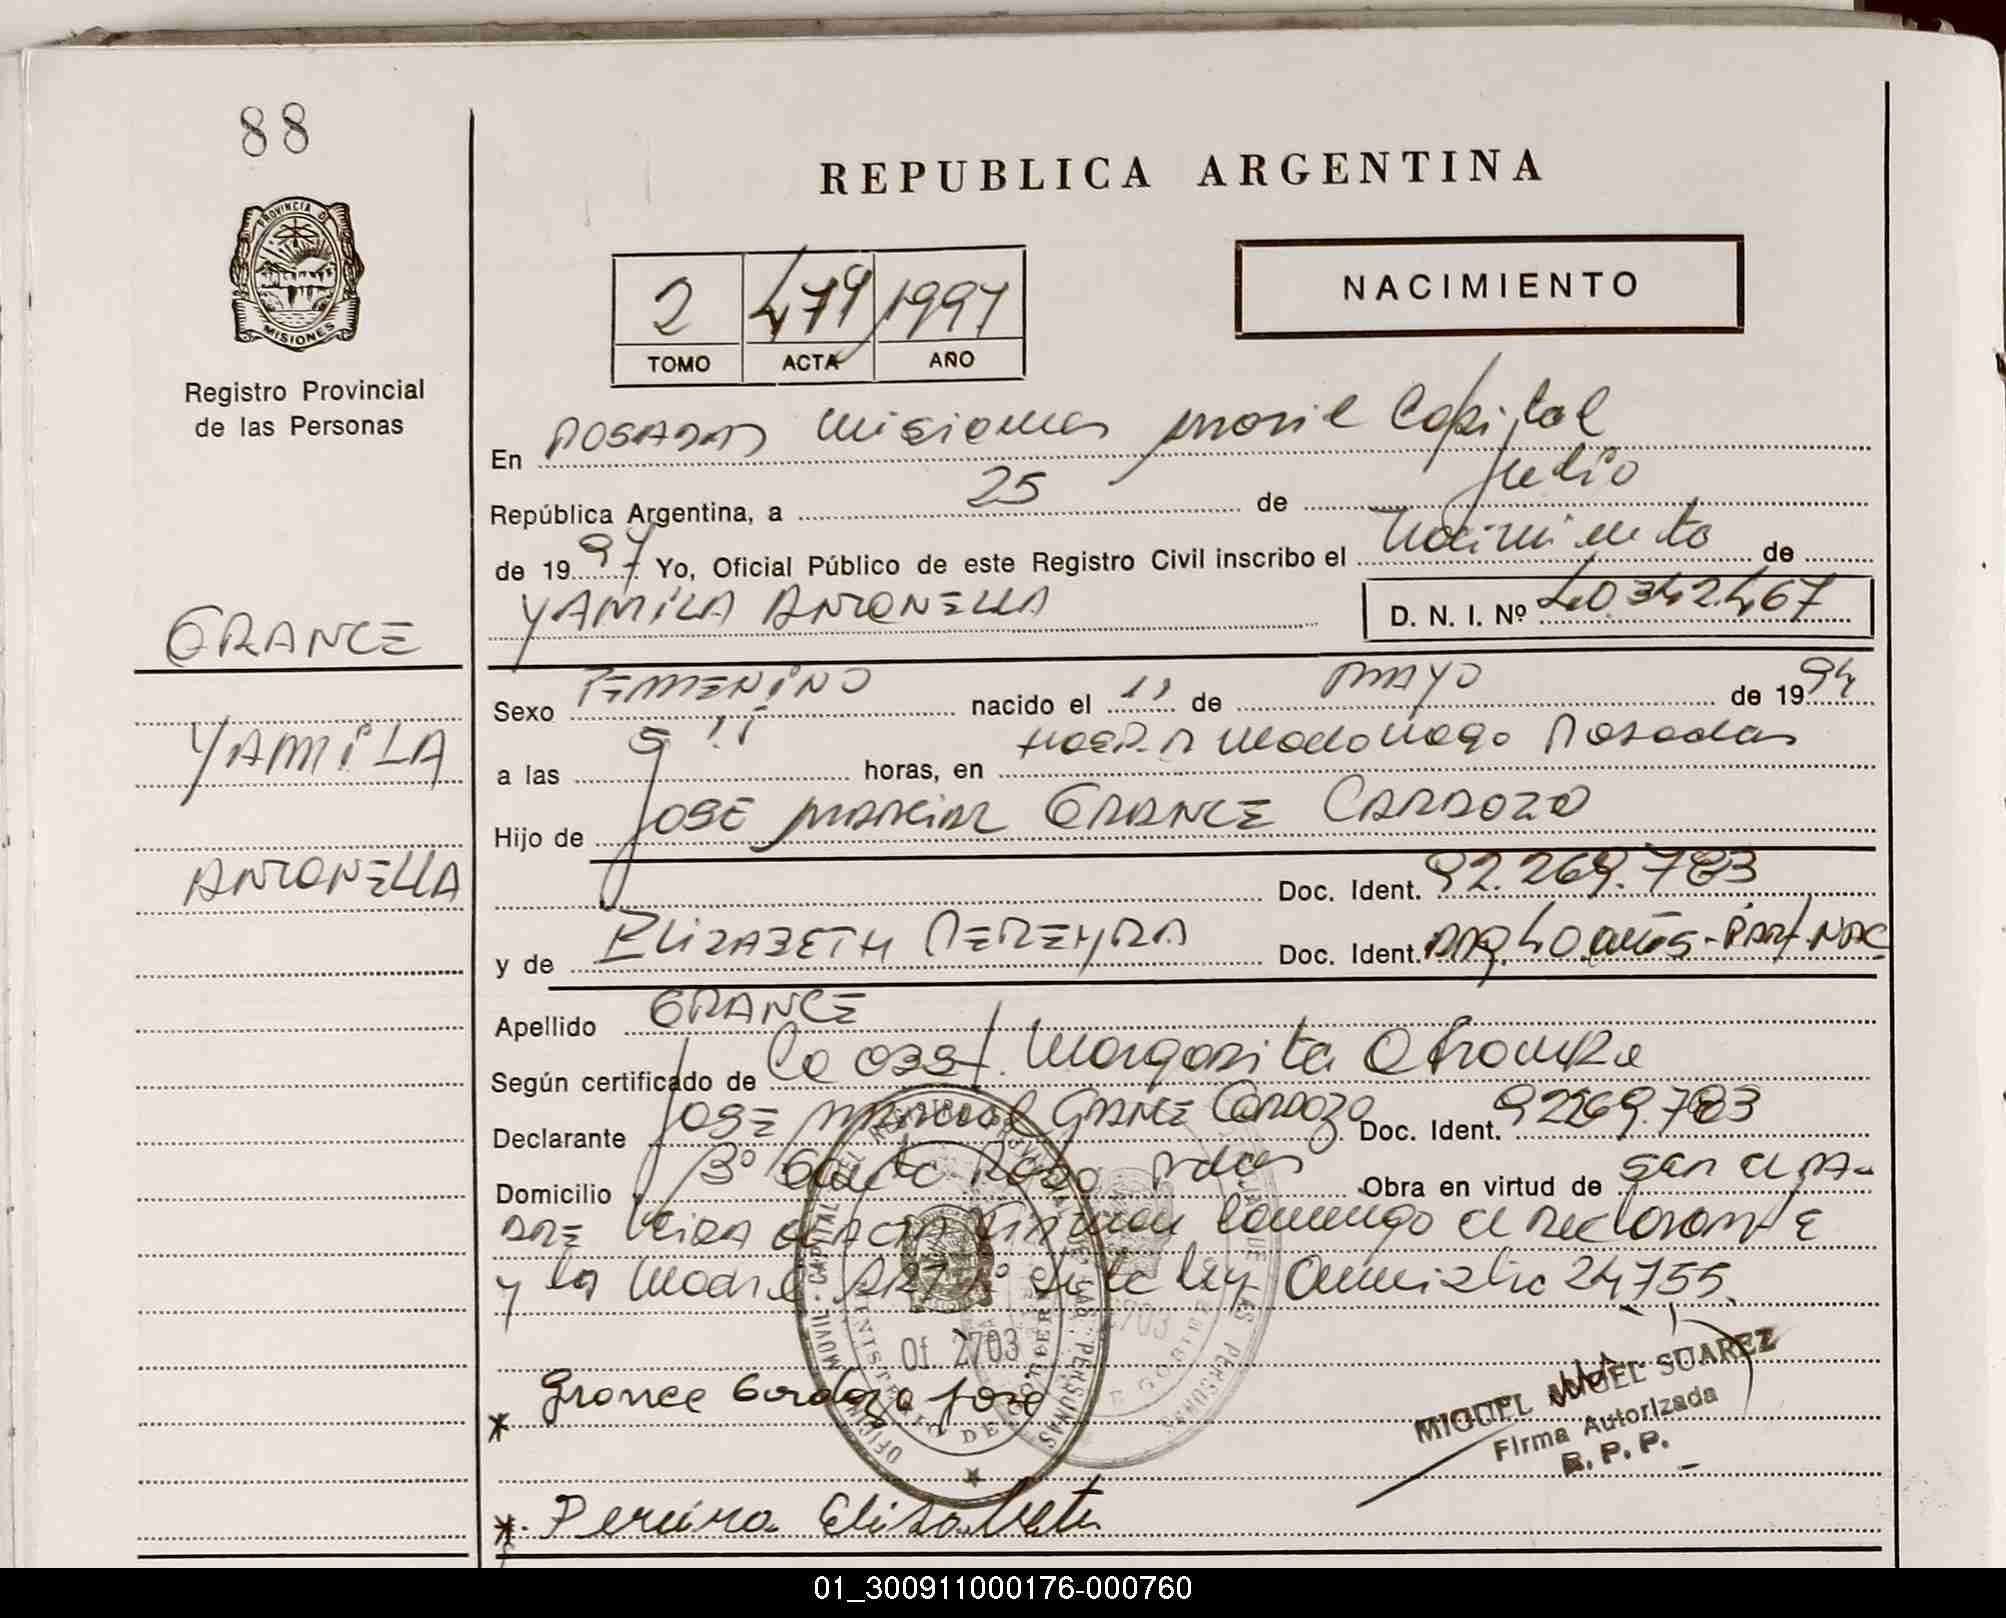 88
REPUBLICA ARGENTINA
PROVINCIA DE
MISIONES
NACIMIENTO
2 479 1997
TOMO ACTA AÑO
Registro Provincial
de las Personas
En POSADAS Misiones movil Capital
República Argentina, a 25 de Julio
de 1997 Yo, Oficial Público de este Registro Civil inscribo el Nacimiento de
YAMILA ANTONELLA D. N. I. Nº 40.342.467
GRANCE
Sexo FEMENINO nacido el 11 de MAYO de 1994
YAMILA
a las horas, en Hosp. R Madariaga Posadas
Hijo de JOSE MARCIAL GRANCE CARDOZO
ANTONELLA
Doc. Ident. 92.269.783
y de ELIZABETH PEREYRA Doc. Ident. ARG. 40 años - PART. NAC
Apellido GRANCE
Según certificado de la obst. Margarita
Declarante JOSE MARCIAL GRANCE Cardozo Doc. Ident. 92269.783
Domicilio Bº Santa Rosa Pdas Obra en virtud de ser el PA-
DRE ACTA FIRMAN conmigo el DECLARANTE
y la Madre ART de la ley Amnistia 24755.
Of 2703
MIGUEL ANGEL SUAREZ
Firma Autorizada
R. P. P.
* Grance Cardozo Jose
*. Pereira Elisabete
01_300911000176-000760